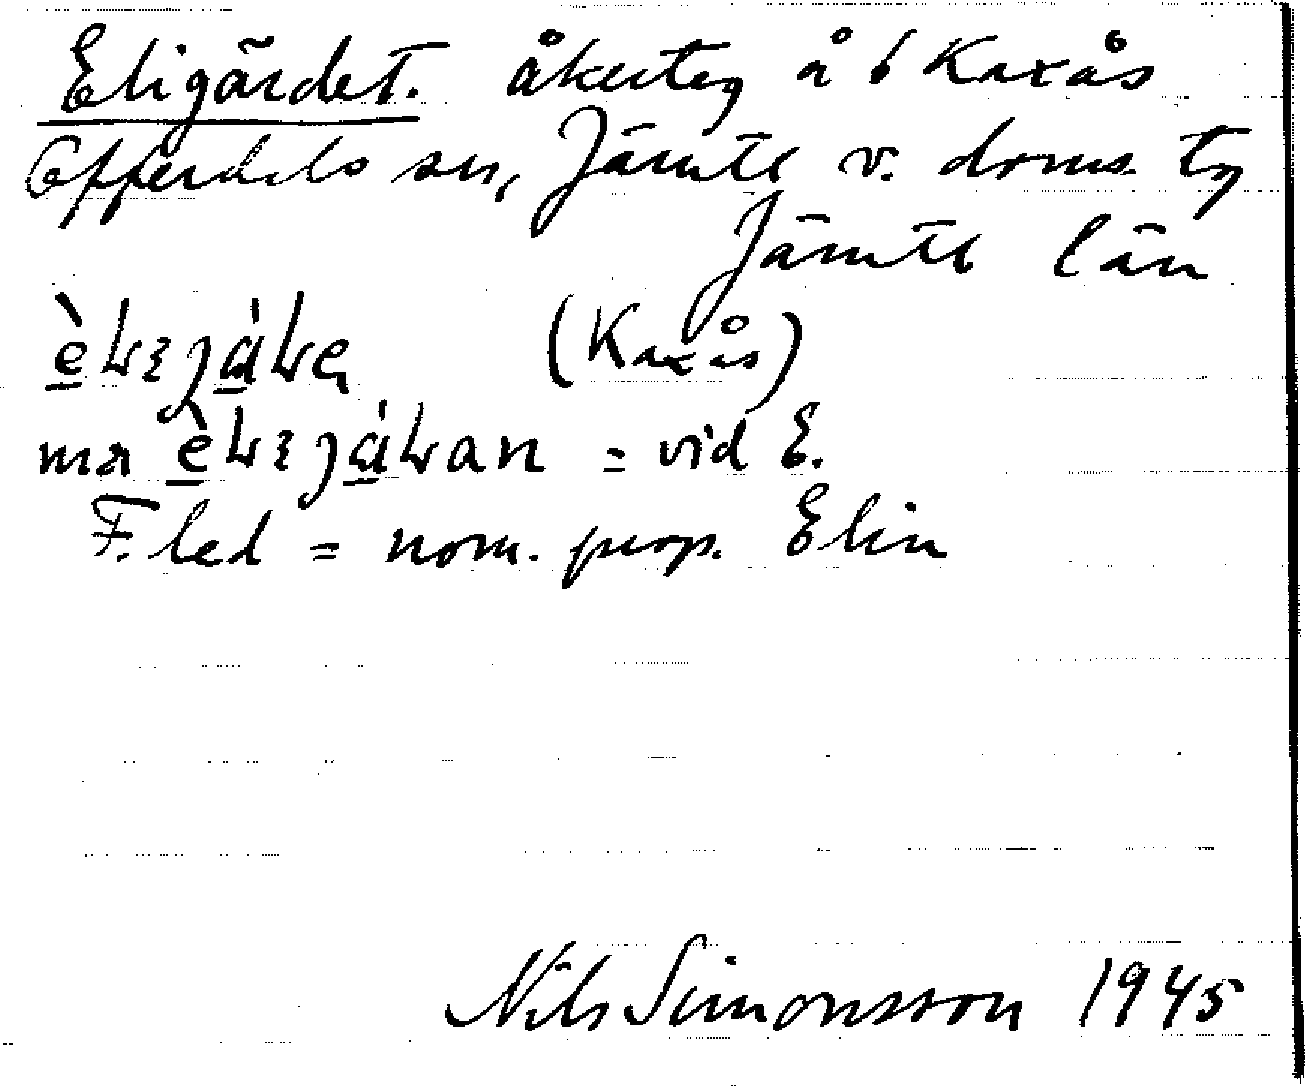 Eligärdet. åkerteg å 6 Kaxås
Offerdals sn, Jämtl v. doms. tg
Jämtl län
(Kaxås)
= vid E.
F. led = nom. prop. Elin
Nils Simonsson 1945